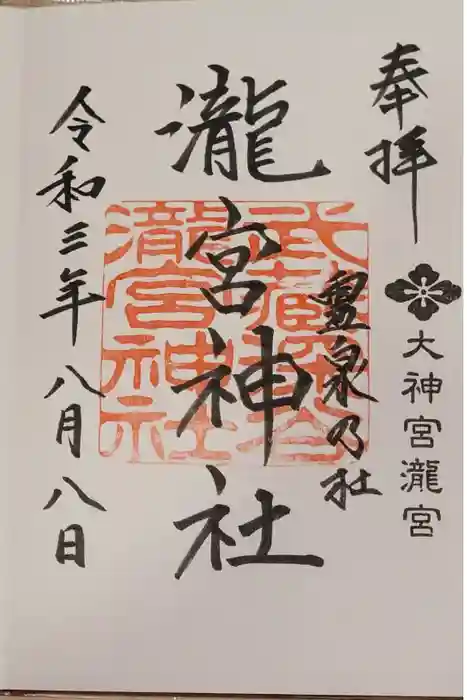 奉拝
大神宮瀧宮
靈泉乃社
瀧宮神社
武蔵深谷
瀧宮神社
令和三年八月八日